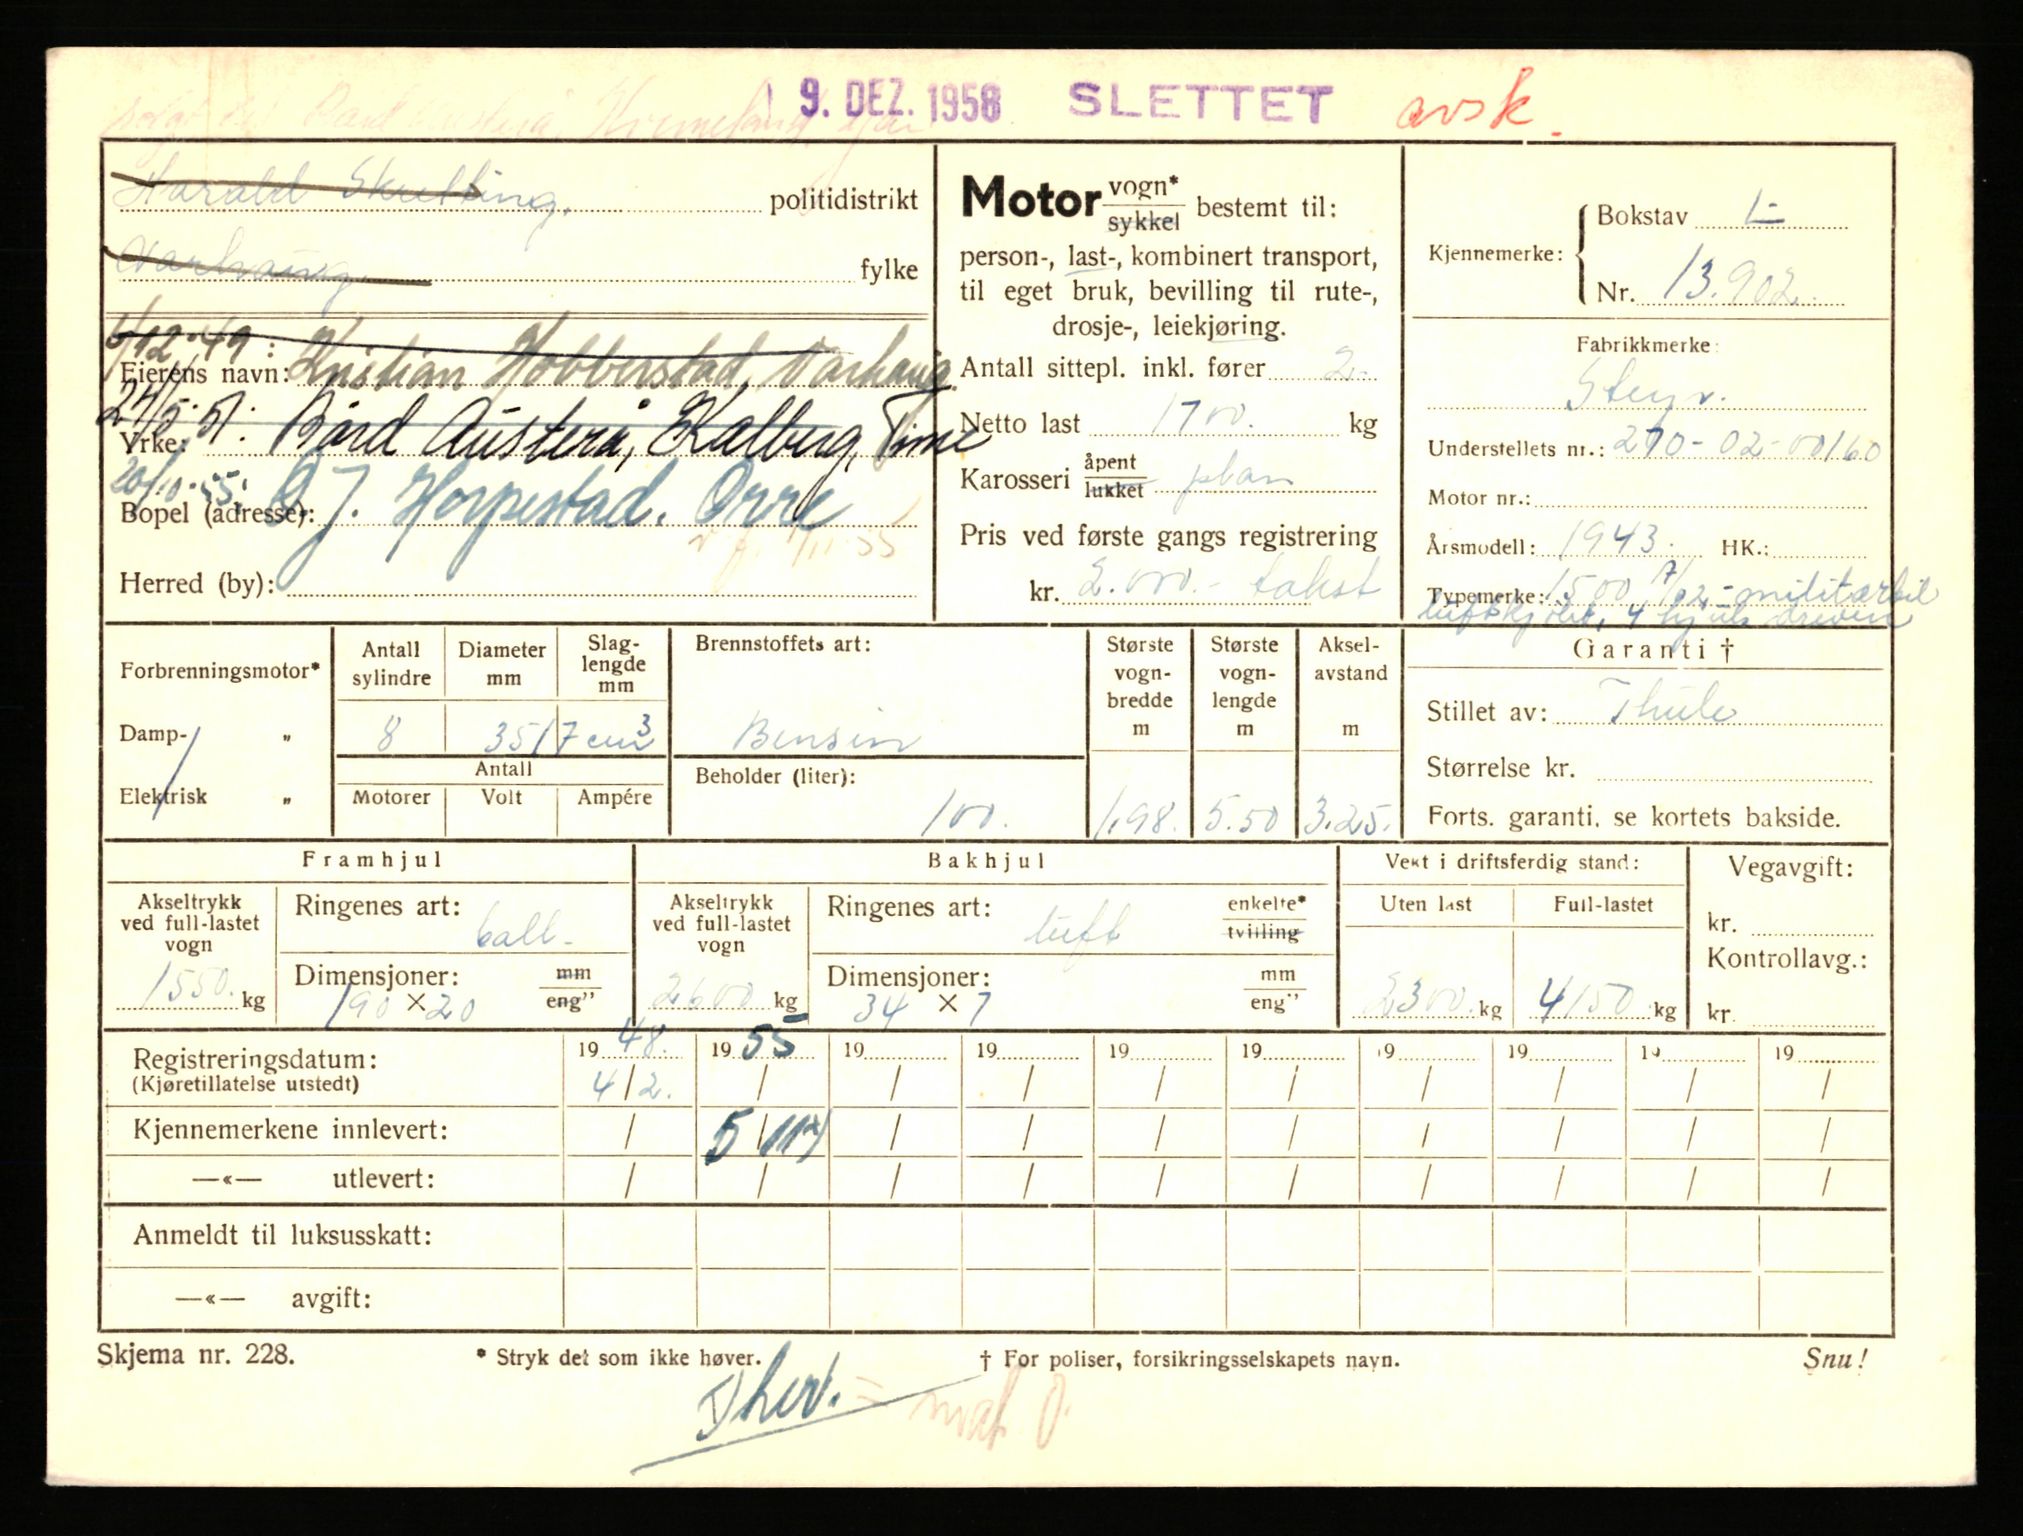 9. DEZ. 1958 SLETTET avsk.
Harald Skretting. politidistrikt
Varhaug fylke
6/12-49: Kristian Hobberstad, Varhaug.
Eierens navn:
24/5-51: Bård Austerå, Kalberg, Time
Yrke:
20/10-55: J. Horpestad. Orre
Bopel (adresse):
/11-55
Herred (by):
Motor vogn* sykkel bestemt til:
person-, last-, kombinert transport,
til eget bruk, bevilling til rute-,
drosje-, leiekjøring.
Antall sittepl. inkl. fører 2.
Netto last 1700. kg
Karosseri åpent lukket plan
Pris ved første gangs registrering
kr. 2.000.- takst
Kjennemerke: Bokstav L
Nr. 13.902.
Fabrikkmerke:
Steyr.
Understellets nr.: 270-02-00160
Motor nr.:
Årsmodell: 1943. HK.:
Typemerke: 1500 /02,- militærbil
luftkjølt, 4 hjuls dreven
Forbrenningsmotor*
Damp- „
Elektrisk „
Antall sylindre Diameter mm Slag-lengde mm
8 3517 cm3
Antall
Motorer Volt Ampére
Brennstoffets art:
Bensin
Beholder (liter):
100.
Største vogn-bredde m Største vogn-lengde m Aksel-avstand m
1,98. 5.50 3.25.
Garanti †
Stillet av: Thule
Størrelse kr.
Forts. garanti, se kortets bakside.
Framhjul
Akseltrykk ved full-lastet vogn
1550. kg
Ringenes art: ball-
Dimensjoner: mm eng”
190 × 20
Bakhjul
Akseltrykk ved full-lastet vogn
2600 kg
Ringenes art: luft enkelte* tvilling
Dimensjoner: mm eng”
34 × 7
Vekt i driftsferdig stand:
Uten last Full-lastet
2300 kg 4150 kg
Vegavgift:
kr.
Kontrollavg.:
kr.
Registreringsdatum: 1948. 1955 19 19 19 19 19 19 19 19
(Kjøretillatelse utstedt) 4/2. / / / / / / / / /
Kjennemerkene innlevert: / 5/11 / / / / / / / /
—«— utlevert: / / / / / / / / / /
Anmeldt til luksusskatt:
—«— avgift:
Skjema nr. 228. * Stryk det som ikke høver. † For poliser, forsikringsselskapets navn. Snu!